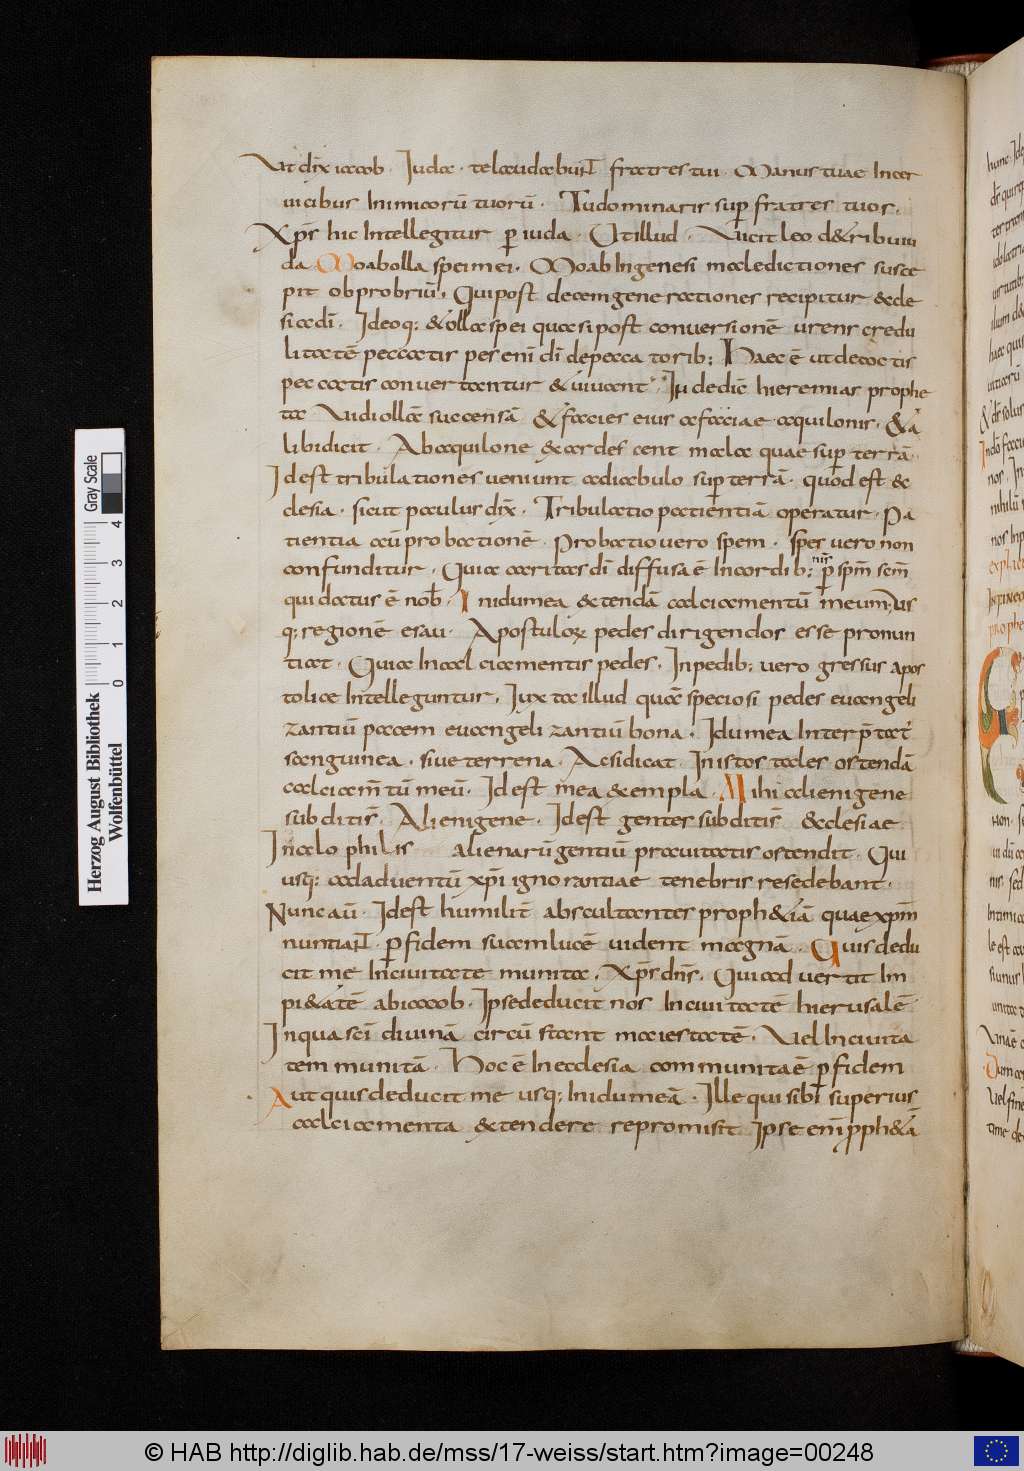 Ut dix̄ iacob · Iudȩ · te laudabunt fratres tui · Manus tuae In cer
uicibus Inimicorū tuorū · Tu dominaris sup̄ fratres tuos ·
Xp̄s hic Intellegitur p̄ iuda · Ut illud · Uicit leo de tribu iu
da Moab olla spei mei · Moab Ingenesi maledictiones susce
pit obprobriū · Qui post decem generationes recipitur & ecle
si a dī · Ideoq; & olla spei qua si post conuersionē urens credu
litatē peccatis per enī dī de pecca torib; Haec ē ut decoctis
peccatis conuertantur & uiuant · In dedic̄ hieremias prophe
ta · Uidi ollā succensā & facies eius a faciae aquilonis · & a
libi dicit · Ab aquilone exardescent mala quae sup̄ terrā ·
Id est tribulationes ueniunt a diabulo sup̄ terrā · quod est ec
clesia · sicut paulus dix̄ · Tribulatio patientiā operatur · Pa
tientia aū probationē · Probatio uero spem · spes uero non
confunditur · Quia caritas dī diffusa ē In cordib; nr̄is p̄ spm̄ scm̄
qui datus ē nob̄ · In idumea extendā calciamentū meum · us
q; regionē esau · Apostulorꝝ pedes dirigendos esse pronun
tiat · Quia In calciamentis pedes · In pedib; uero gressus apos
tolicae Intelleguntur · Iuxta illud quā speciosi pedes euangeli
zantiū pacem euangelizantiū bona · Idumea Interp̄tat̄
sanguinea · siue terrena · Ac si dicat · In istos tales ostendā
calciam̄tū meū · Id est mea exempla · Mihi alienigene
subditi s̄ · Alienigene · Id est gentes subditi s̄ ecclesiae
In alo philis alienarū gentiū prauitatis ostendit · Qui
usq; ad aduentū xp̄i ignorantiae tenebris resedebant ·
Nunc aū · Id est humilit̄ abscultantes proph&iā quae xp̄m
nuntiant p̄ fidem suam lucē uident magnā · Quis dedu
cit me In ciuitate munita · Xp̄s dn̄s · Qui aduertit Im
pi&atē ab iacob · Ipse deducit nos In ciuitatē hierusalē
In qua sc̄i diuinā circū stant maiestatē · Uel In ciuita
tem munitā · Hoc ē In ecclesia communitaē p̄ fidem
Aut quis deducit me usq; In idumeā · Ille qui sibi superius
calciamenta extendere repromisit Ipse enī p̄ proph&iā
Herzog August Bibliothek
Wolfenbüttel
Gray Scale
0 1 2 3 4
© HAB http://diglib.hab.de/mss/17-weiss/start.htm?image=00248